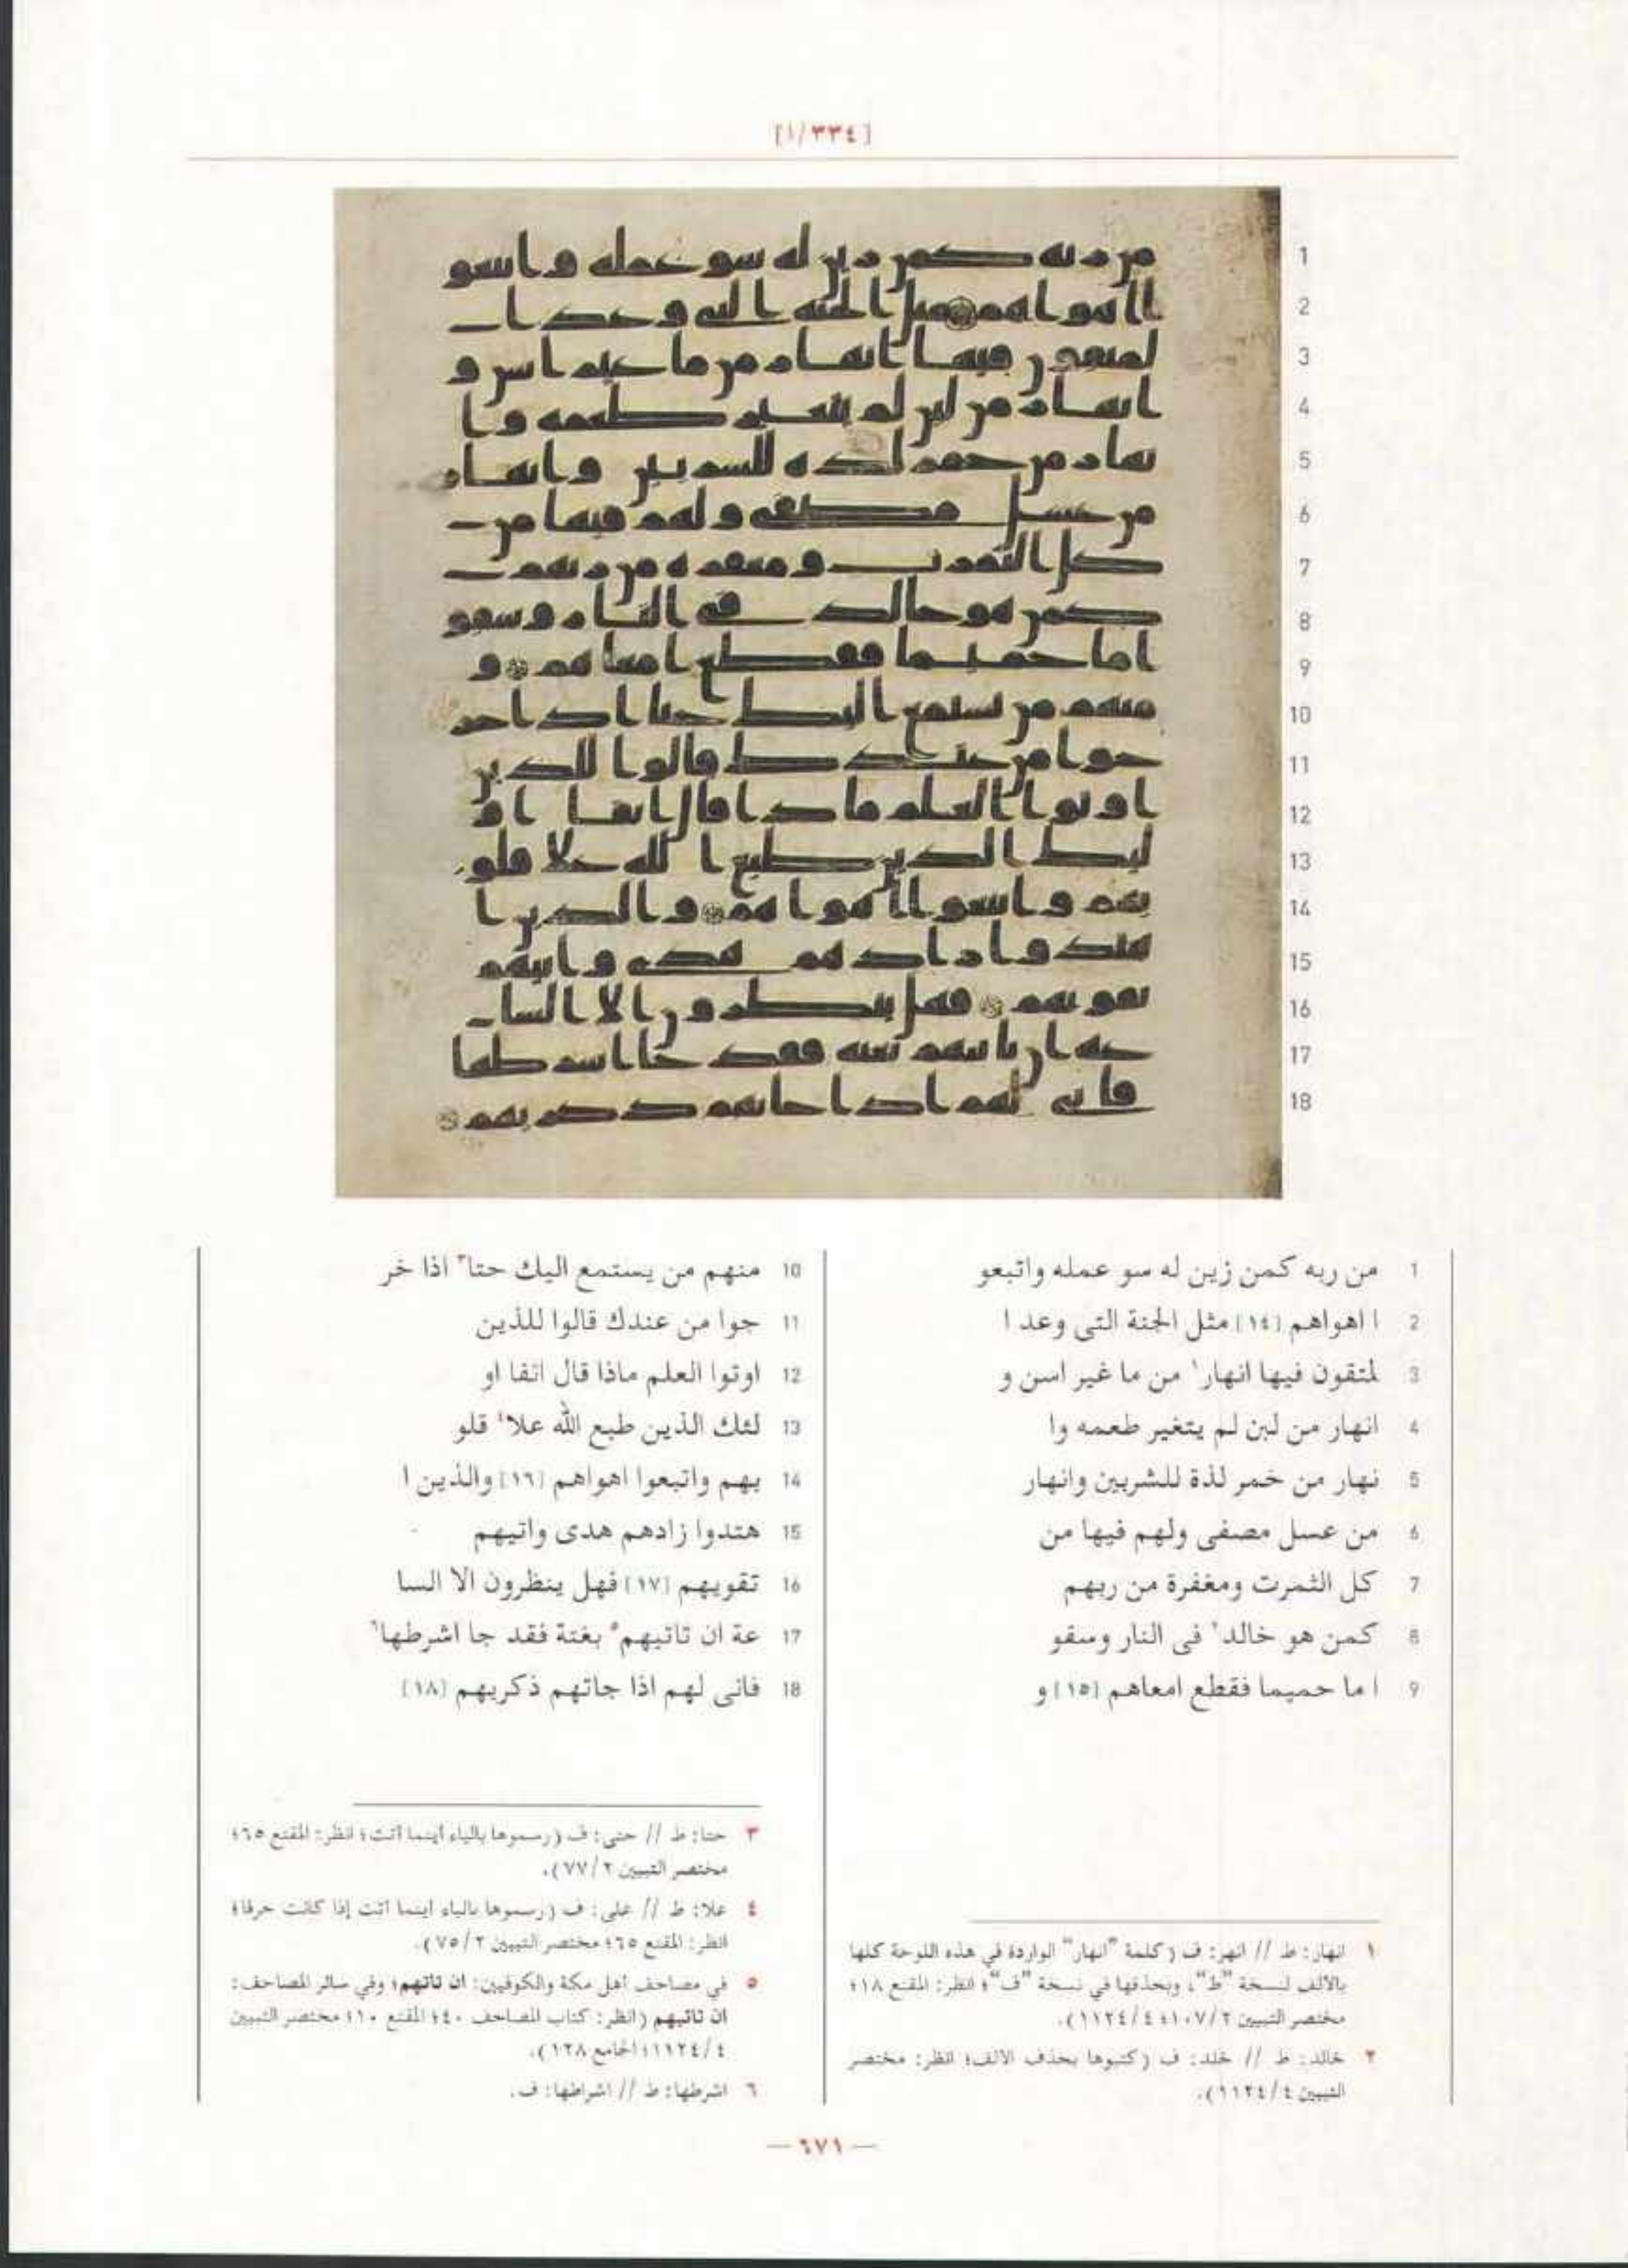 [١/٣٣٤]
1 من ربه كمن زين له سو عمله واتبعو
2 ا اهواهم [١٤] مثل الجنة التى وعد ا
3 لمتقون فيها انهار١ من ما غير اسن و
4 انهار من لبن لم يتغير طعمه وا
5 نهار من خمر لذة للشربين وانهار
6 من عسل مصفى ولهم فيها من
7 كل الثمرت ومغفرة من ربهم
8 كمن هو خالد٢ فى النار وسقو
9 ا ما حميما فقطع امعاهم [١٥] و
10 منهم من يستمع اليك حتا٣ اذا خر
11 جوا من عندك قالوا للذين
12 اوتوا العلم ماذا قال انفا او
13 لئك الذين طبع الله علا٤ قلو
14 بهم واتبعوا اهواهم [١٦] والذين ا
15 هتدوا زادهم هدى واتيهم
16 تقويهم [١٧] فهل ينظرون الا السا
17 عة ان تاتيهم٥ بغتة فقد جا اشرطها٦
18 فانى لهم اذا جاتهم ذكريهم [١٨]
١ انهار: ط // انهر: ف (كلمة "انهار" الواردة في هذه اللوحة كلها
بالألف لنسخة "ط"، وبحذفها في نسخة "ف"؛ انظر: المقنع ١٨؛
مختصر التبيين ١٠٧/٢؛ ١١٢٤/٤).
٢ خالد: ط // خلد: ف (كتبوها بحذف الالف؛ انظر: مختصر
التبيين ١١٢٤/٤).
٣ حتا: ط // حتى: ف (رسموها بالياء أينما أتت؛ انظر: المقنع ٦٥؛
مختصر التبيين ٧٧/٢).
٤ علا: ط // على: ف (رسموها بالياء اينما أتت إذا كانت حرفا؛
انظر: المقنع ٦٥؛ مختصر التبيين ٧٥/٢).
٥ في مصاحف أهل مكة والكوفيين: ان تاتهم؛ وفي سائر المصاحف:
ان تاتيهم (انظر: كتاب المصاحف ٤٠؛ المقنع ١٠؛ مختصر التبيين
١١٢٤/٤؛ الجامع ١٢٨).
٦ اشرطها: ط // اشراطها: ف.
— ٦٧١ —